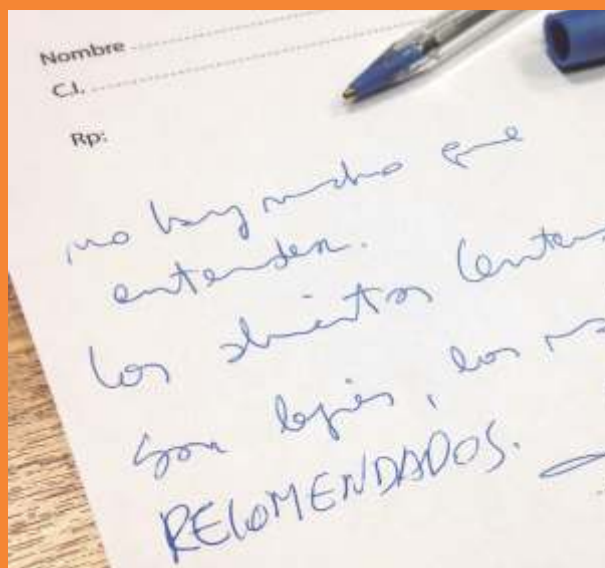 Nombre
C.I.
Rp:
no hay mucho que
entender.
los alimentos
son lejos, los
RECOMENDADOS.